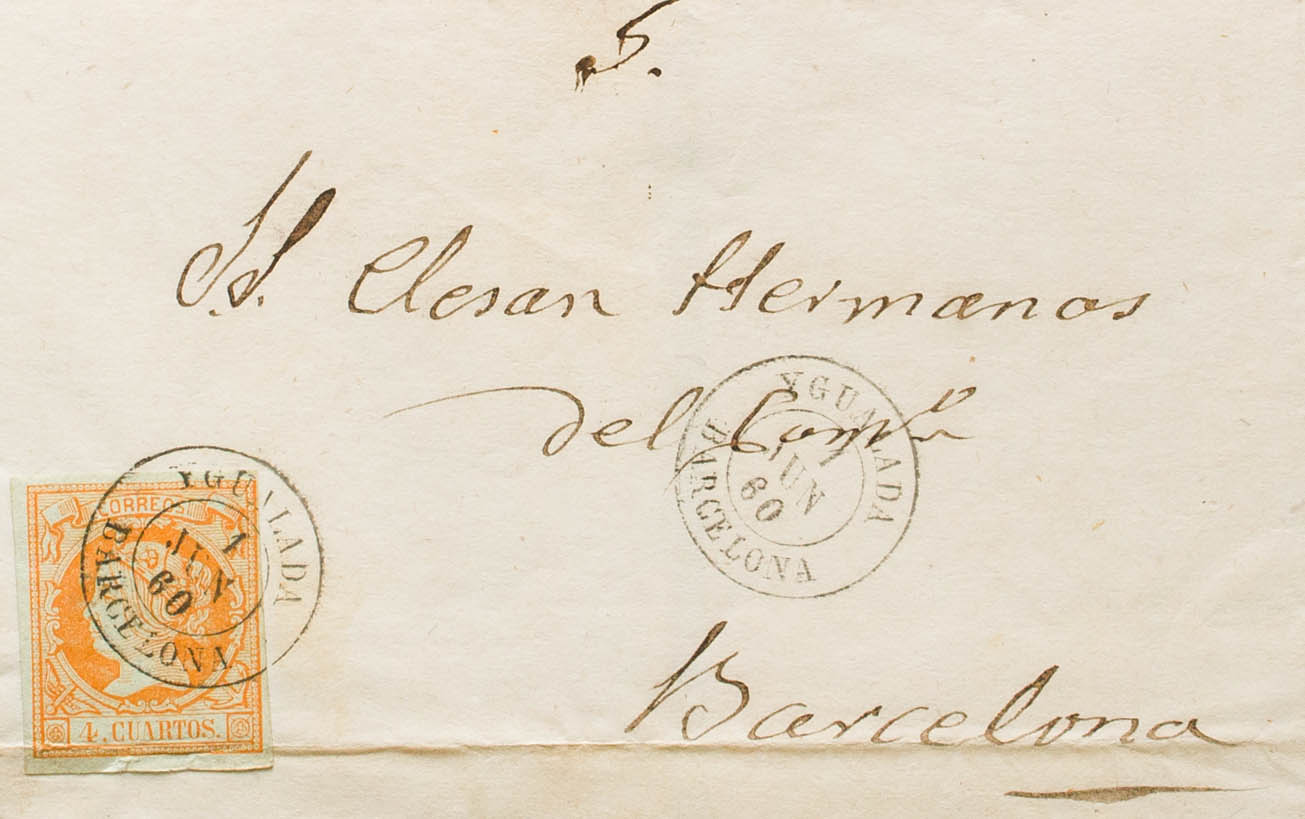 5.
S.S. Clesan Hermanos
del Comº
YGUALADA
1
JUN
60
BARCELONA
CORREOS
YGUALADA
1
JUN
60
BARCELONA
4. CUARTOS.
Barcelona